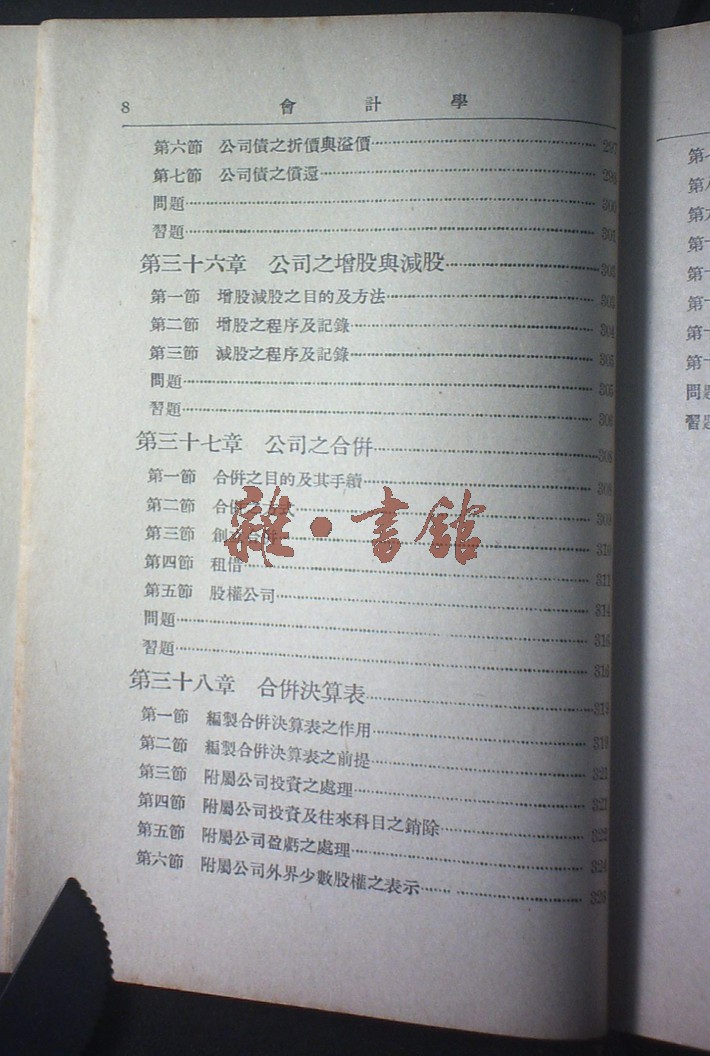 8 會計學
第六節 公司債之折價與溢價 297
第七節 公司債之償還 298
問題 300
習題 301
第三十六章 公司之增股與減股 302
第一節 增股減股之目的及方法 303
第二節 增股之程序及記錄 304
第三節 減股之程序及記錄 305
問題 305
習題 306
第三十七章 公司之合併 308
第一節 合併之目的及其手續 308
第二節 合併 309
第三節 合併 310
第四節 租借 311
第五節 股權公司 314
問題 316
習題 316
第三十八章 合併決算表 319
第一節 編製合併決算表之作用 319
第二節 編製合併決算表之前提 321
第三節 附屬公司投資之處理 321
第四節 附屬公司投資及往來科目之銷除 322
第五節 附屬公司盈虧之處理 324
第六節 附屬公司外界少數股權之表示 326
雜·書館
第
第
第
第十
第十
第十
第十
第十
問題
習題